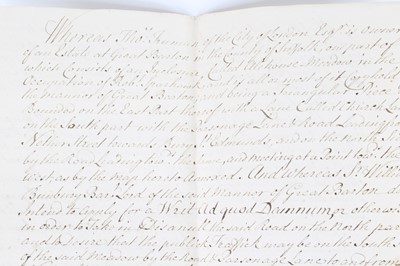 Whereas Thos. of the City of London Esqr. is owner
of an Estate at Great Barton in the County of Suffolk, one part of
which Consists of an Inclosure Meadow in the
Occupation of Robt. and of all or most of it Copyhold
the manor of Great Barton, and being a Triangular Piece
Bounded on the East Part thereof with a Lane Called Church Lane
on the South part with the Parsonage Lane & Road Leading from
Street towards Bury St. Edmunds, and on the North
by the Road Leading the same, and meeting at a Point
west as by the map hereto Annexed. And whereas Sr. Willm
Bunbury Bart. Lord of the said Mannor of Great Barton
Intends to apply for a Writ Ad quod Damnum or otherwise
in order to take in & Disannull the said Road on the North part
and to Secure that the publick may be on the South
of the said Meadow by the Road & Parsonage Lane to and from